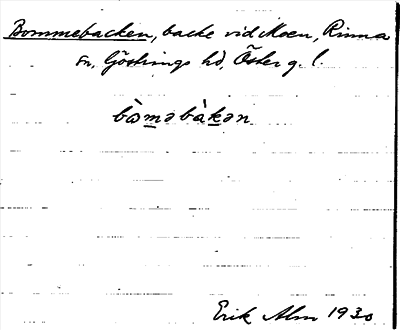 Bommebacken, backe vid Moen, Rinna
sn, Göstrings hd, Österg. l.
bòmǝbàkǝn
Erik Alm 1930